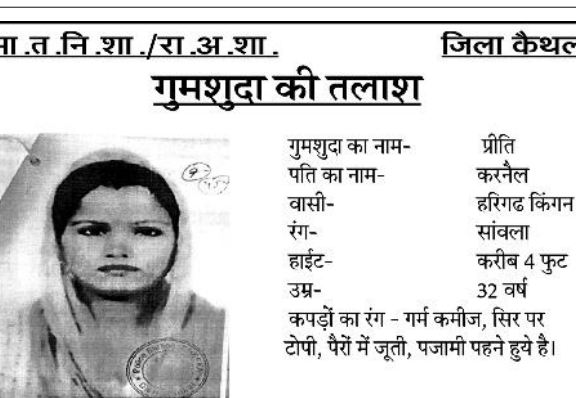 मा .त .नि .शा ./रा .अ .शा . जिला कैथल
गुमशुदा की तलाश
गुमशुदा का नाम- प्रीति
पति का नाम- करनैल
वासी- हरिगढ किंगन
रंग- सांवला
हाईट- करीब 4 फुट
उम्र- 32 वर्ष
कपड़ों का रंग - गर्म कमीज, सिर पर
टोपी, पैरों में जूती, पजामी पहने हुये है।